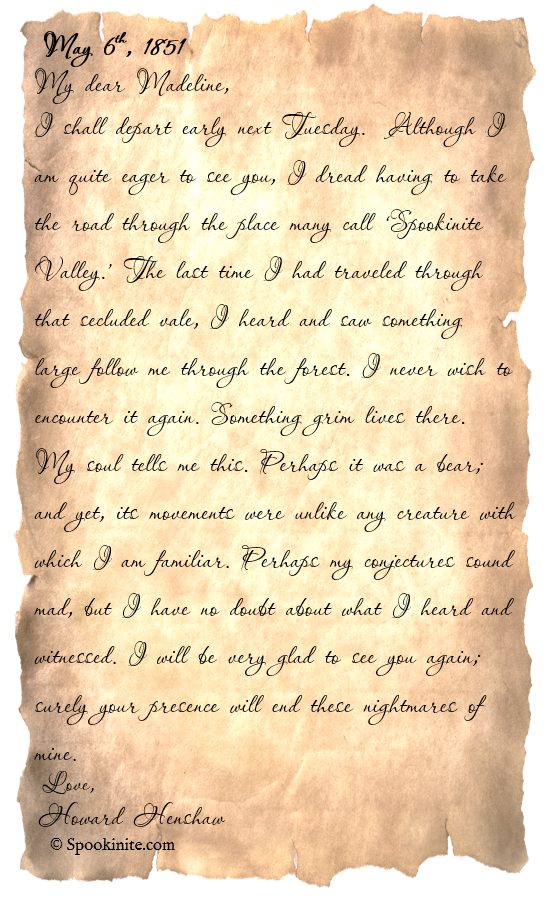 May 6th, 1851
My dear Madeline,
I shall depart early next Tuesday. Although I
am quite eager to see you, I dread having to take
the road through the place many call 'Spookinite
Valley.' The last time I had traveled through
that secluded vale, I heard and saw something
large follow me through the forest. I never wish to
encounter it again. Something grim lives there.
My soul tells me this. Perhaps it was a bear;
and yet, its movements were unlike any creature with
which I am familiar. Perhaps my conjectures sound
mad, but I have no doubt about what I heard and
witnessed. I will be very glad to see you again;
surely your presence will end these nightmares of
mine.
Love,
Howard Henshaw
© Spookinite.com